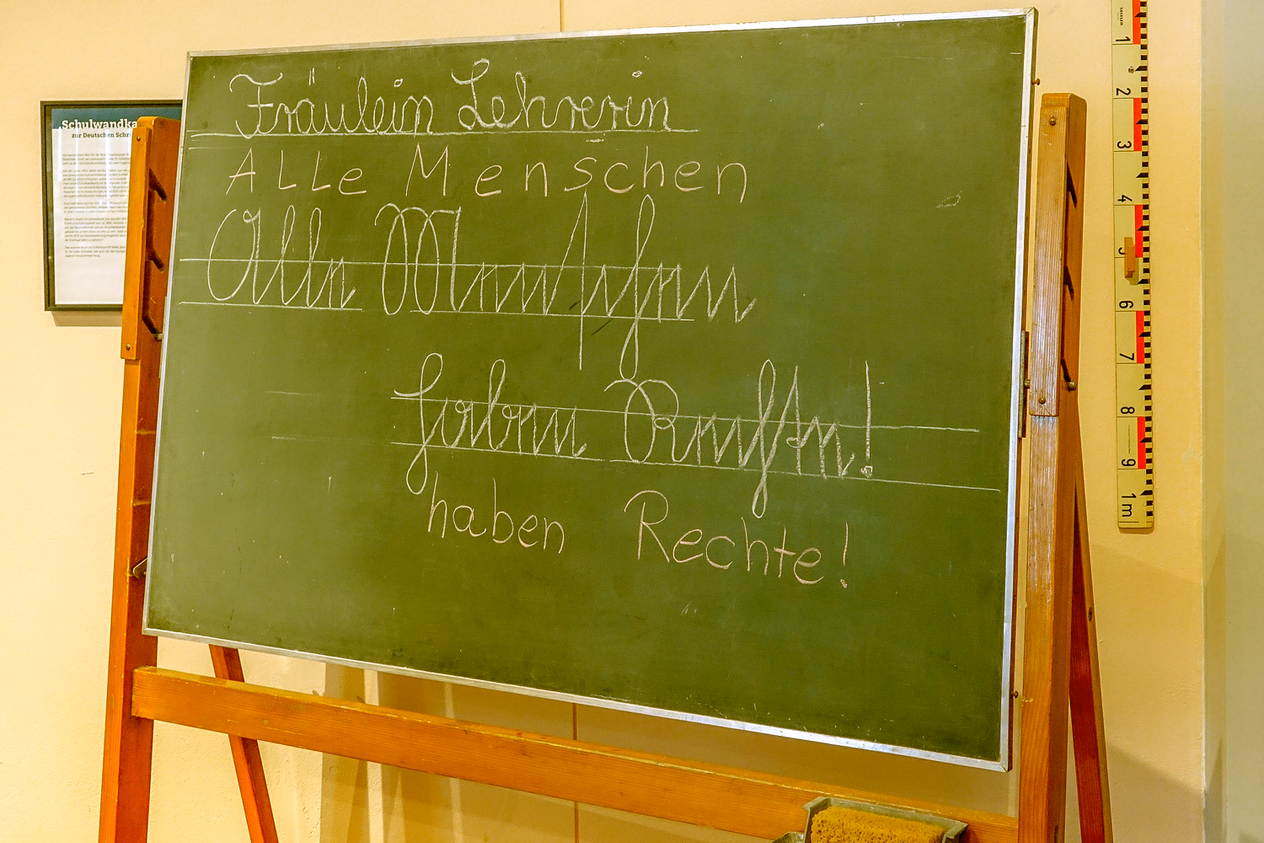 Fräulein Lehrerin
ALLe Menschen
Alle Menschen
haben Rechte!
haben Rechte!
Schulwandka
zur Deutschen Schri
1
2
3
4
5
6
7
8
9
1m